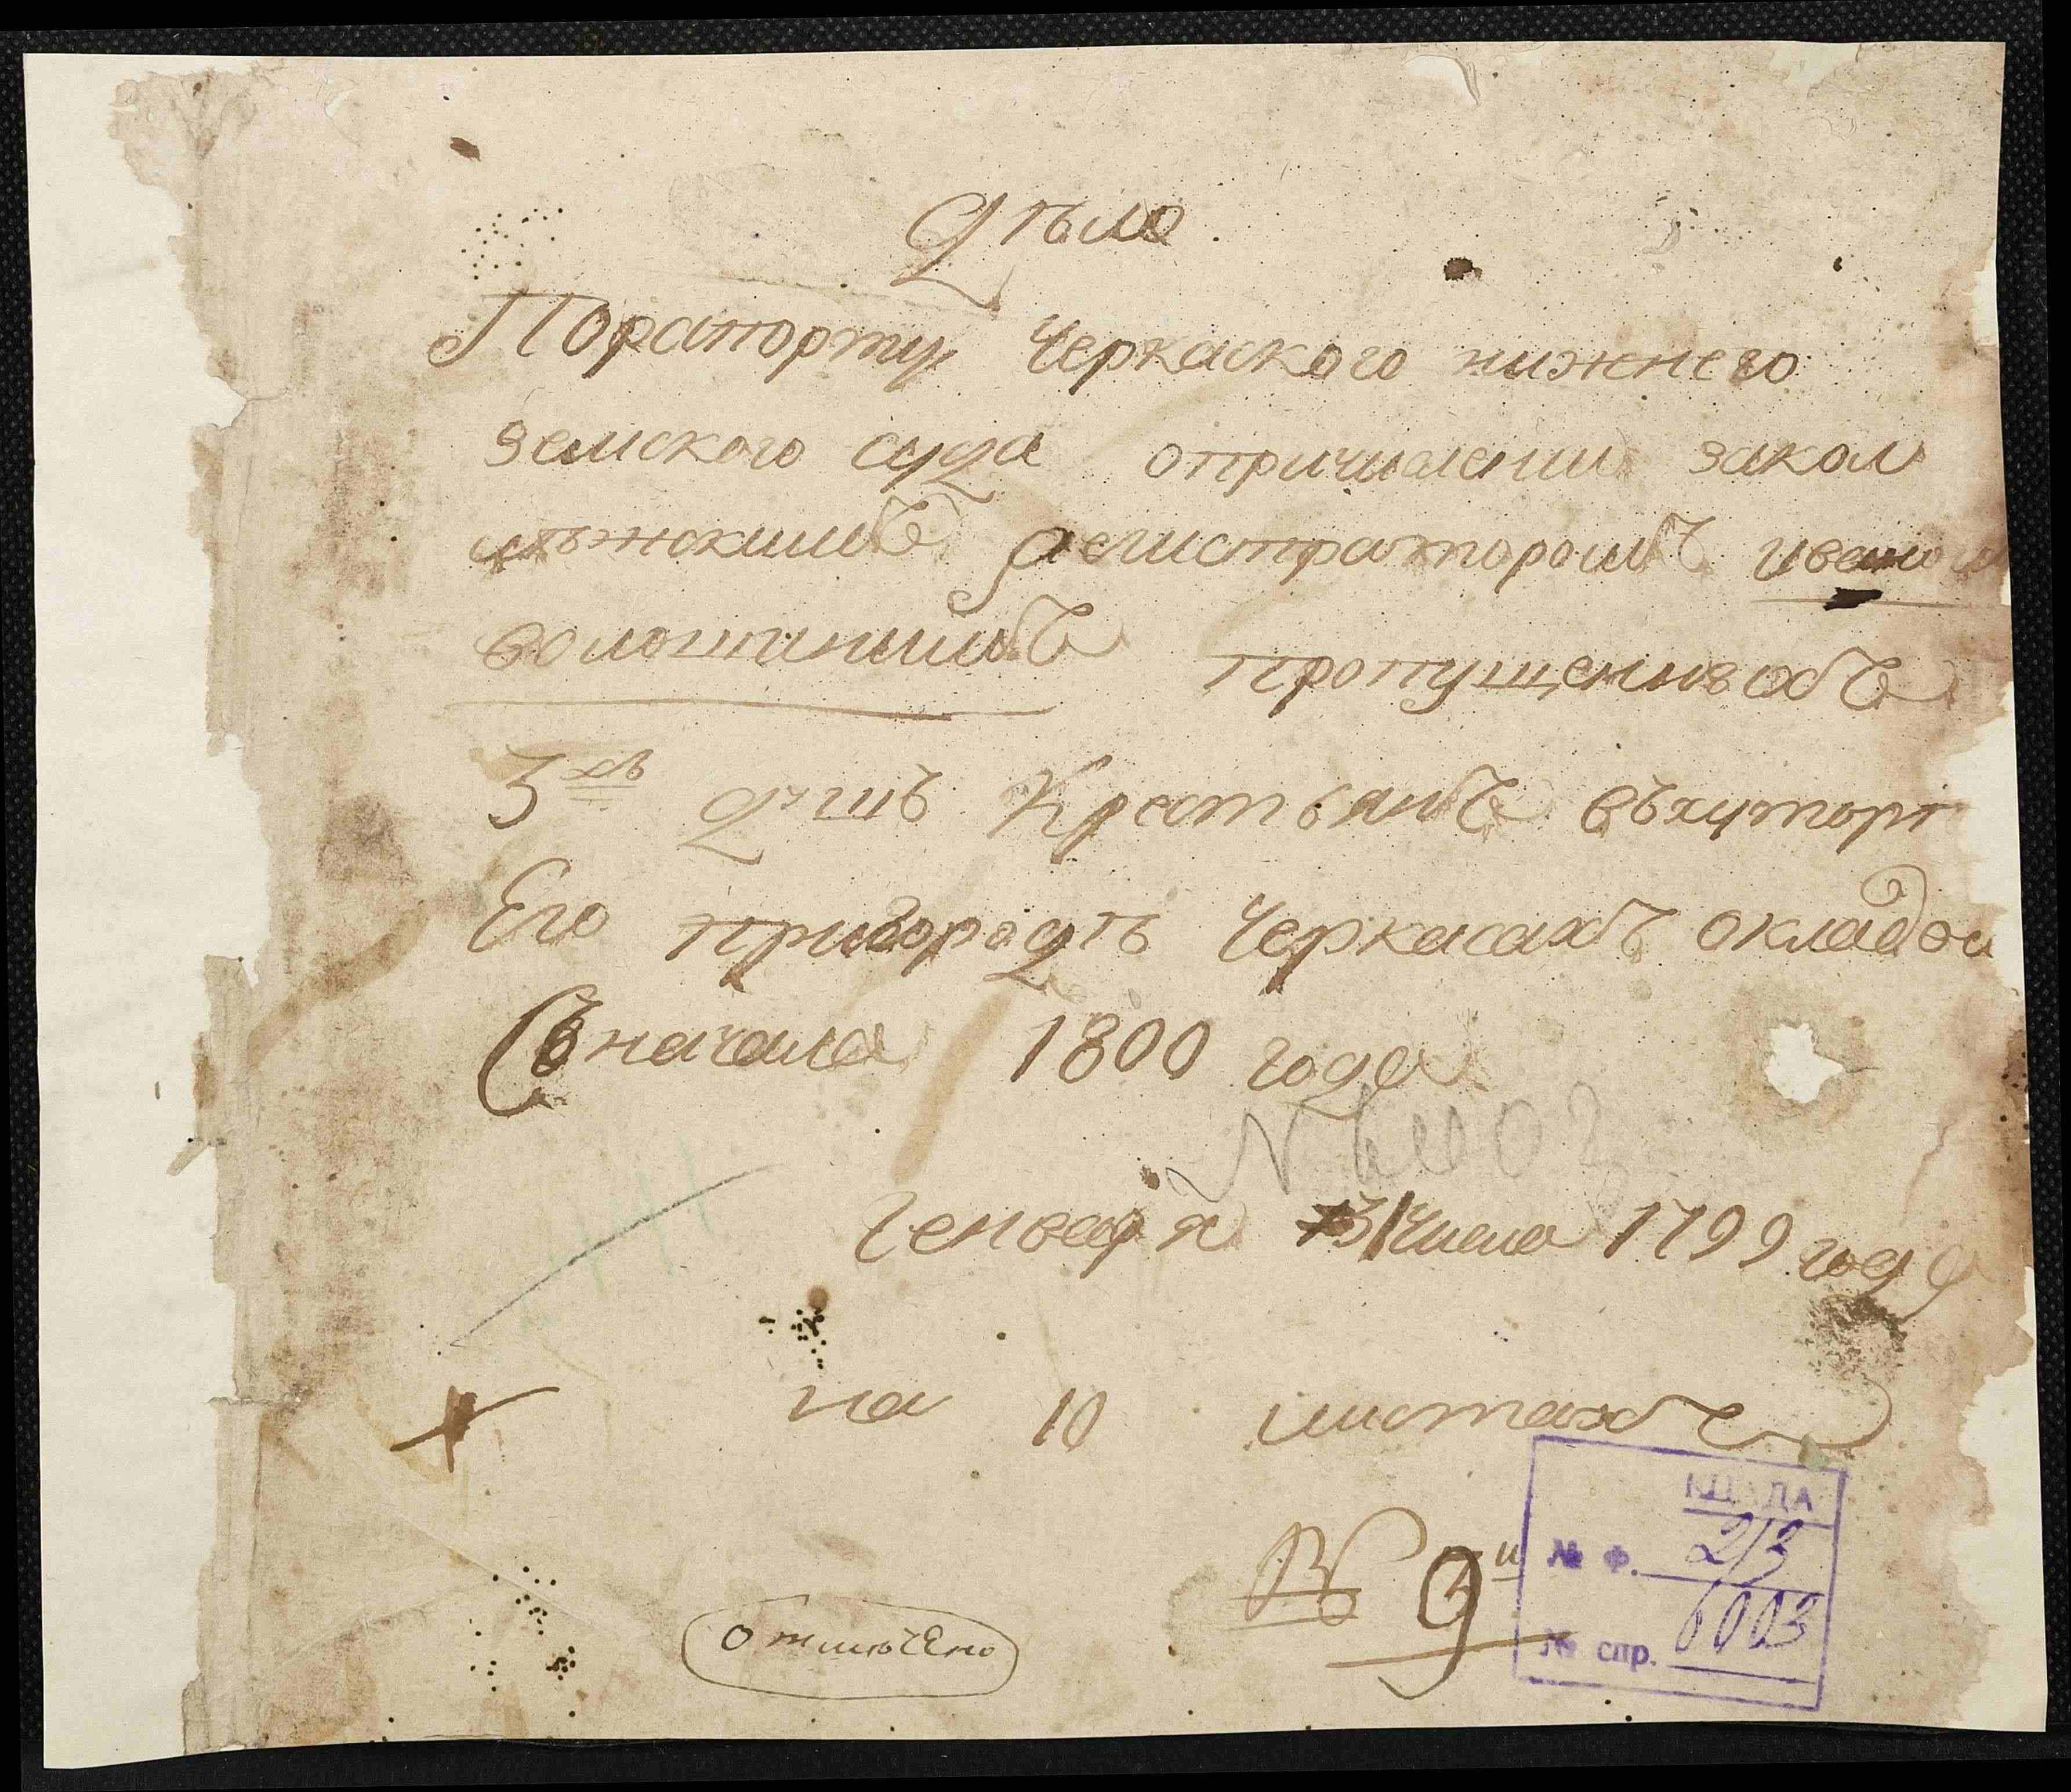 Дѣло
Порапорту Черкаского нижнего
земского суда опричислении закол
лѣжскимъ регистраторомъ ивано
волотинимъ пропущенныхъ
3хъ душъ Крестьянъ въхуторѣ
Его пригородѣ Черкасахъ окладом
Съначала 1800 года
N 6003
Генваря 31 числа 1799 года
на 10 листахъ
КЦАДА
№ ф. 213
№ спр. 6003
№ 9й
отмѣчено